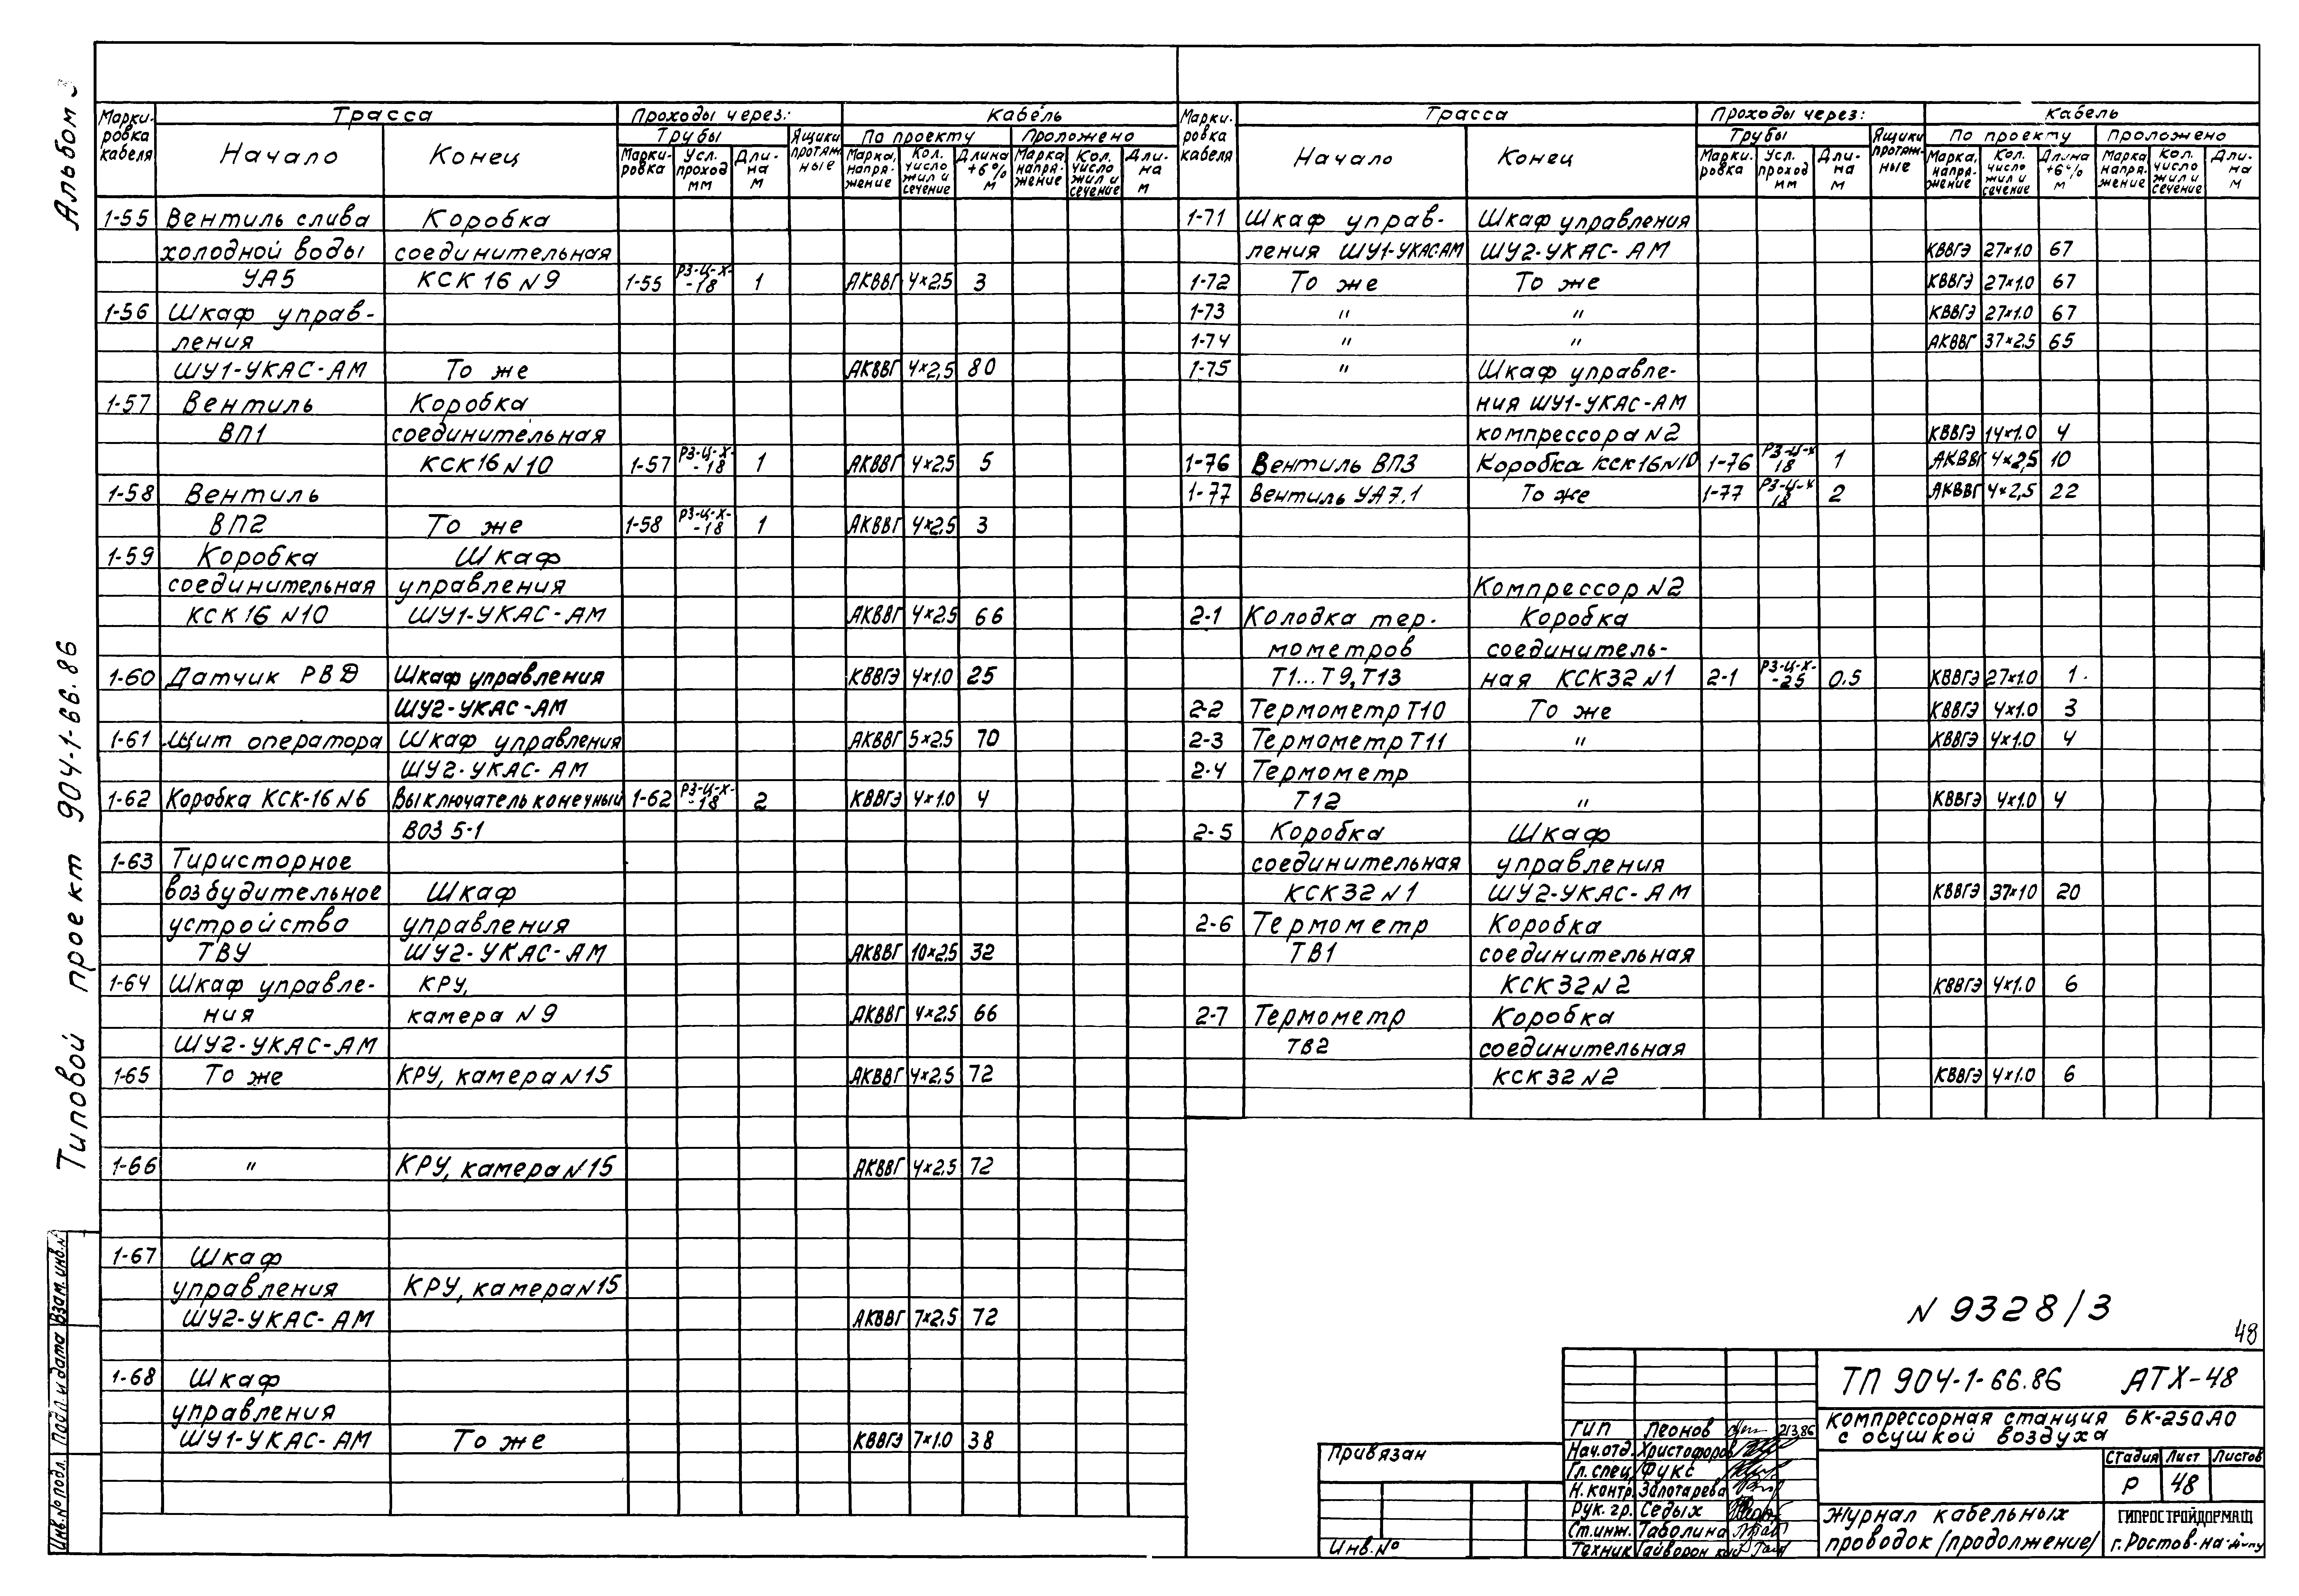 Альбом 3
Типовой проект 904-1-66.86
Инв.№ подл. Подл. и дата Взам. инв.№
Марки-ровка кабеля Трасса Проходы через: Кабель
Начало Конец Трубы Ящики протяж-ные По проекту Проложено
Марки-ровка Усл. проход мм Дли-на м Марка, напря-жение Кол. число жил и сечение Длина +6% м Марка напря-жение Кол. число жил и сечение Дли-на м
1-55 Вентиль слива Коробка
холодной воды соединительная
УА5 КСК 16 N9 1-55 РЗ-Ц-Х--18 1 АКВВГ 4×2.5 3
1-56 Шкаф управ-
ления
ШУ1-УКАС-АМ То же АКВВГ 4×2,5 80
1-57 Вентиль Коробка
ВП1 соединительная
КСК16 N10 1-57 РЗ-Ц-Х--18 1 АКВВГ 4×2,5 5
1-58 Вентиль
ВП2 То же 1-58 РЗ-Ц-Х--18 1 АКВВГ 4×2.5 3
1-59 Коробка Шкаф
соединительная управления
КСК 16 N10 ШУ1-УКАС-АМ АКВВГ 4×2.5 66
1-60 Датчик РВД Шкаф управления КВВГЭ 4×1.0 25
ШУ2-УКАС-АМ
1-61 Щит оператора Шкаф управления АКВВГ 5×2.5 70
ШУ2-УКАС-АМ
1-62 Коробка КСК-16 N6 Выключатель конечный 1-62 РЗ-Ц-Х--18 2 КВВГЭ 4×1.0 4
ВОЗ 5-1
1-63 Тиристорное
возбудительное Шкаф
устройство управления
ТВУ ШУ2-УКАС-АМ АКВВГ 10×2.5 32
1-64 Шкаф управле- КРУ,
ния камера N9 АКВВГ 4×2.5 66
ШУ2-УКАС-АМ
1-65 То же КРУ, камера N15 АКВВГ 4×2,5 72
1-66 " КРУ, камера N15 АКВВГ 4×2,5 72
1-67 Шкаф
управления КРУ, камера N15
ШУ2-УКАС-АМ АКВВГ 7×2,5 72
1-68 Шкаф
управления
ШУ1-УКАС-АМ То же КВВГЭ 7×1.0 38
Марки-ровка кабеля Трасса Проходы через: Кабель
Начало Конец Трубы Ящики протяж-ные По проекту Проложено
Марки-ровка Усл. проход мм Дли-на м Марка, напря-жение Кол. число жил и сечение Длина +6% м Марка напря-жение Кол. число жил и сечение Дли-на м
1-71 Шкаф управ- Шкаф управления
ления ШУ1-УКАС-АМ ШУ2-УКАС-АМ КВВГЭ 27×1.0 67
1-72 То же То же КВВГЭ 27×1.0 67
1-73 " " КВВГЭ 27×1.0 67
1-74 " " АКВВГ 37×2,5 65
1-75 " Шкаф управле-
ния ШУ1-УКАС-АМ
компрессора N2 КВВГЭ 14×1.0 4
1-76 Вентиль ВП3 Коробка КСК16N10 1-76 РЗ-Ц-Х 18 1 АКВВГ 4×2,5 10
1-77 Вентиль УА7.1 То же 1-77 РЗ-Ц-Х 18 2 АКВВГ 4×2,5 22
Компрессор N2
2-1 Колодка тер- Коробка
мометров соединитель-
Т1...Т9, Т13 ная КСК32 N1 2-1 РЗ-Ц-Х--25 0.5 КВВГЭ 27×1.0 1.
2-2 Термометр Т10 То же КВВГЭ 4×1.0 3
2-3 Термометр Т11 " КВВГЭ 4×1.0 4
2-4 Термометр
Т12 " КВВГЭ 4×1.0 4
2-5 Коробка Шкаф
соединительная управления
КСК32 N1 ШУ2-УКАС-АМ КВВГЭ 37×10 20
2-6 Термометр Коробка
ТВ1 соединительная
КСК32 N2 КВВГЭ 4×1.0 6
2-7 Термометр Коробка
ТВ2 соединительная
КСК32 N2 КВВГЭ 4×1.0 6
N 9328/3
48
ТП 904-1-66.86 АТХ-48
Компрессорная станция 6К-250АО
с осушкой воздуха
Стадия Лист Листов
Р 48
Журнал кабельных
проводок (продолжение)
ГИПРОСТРОЙДОРМАШ
г. Ростов-на-Дону
ГИП Леонов 213.86
Нач.отд. Христофоров
Гл.спец. Фукс
Н.контр. Золотарева
Рук.гр. Седых
Ст.инж. Таболина
Техник Гайворонский
Привязан
Инв.№